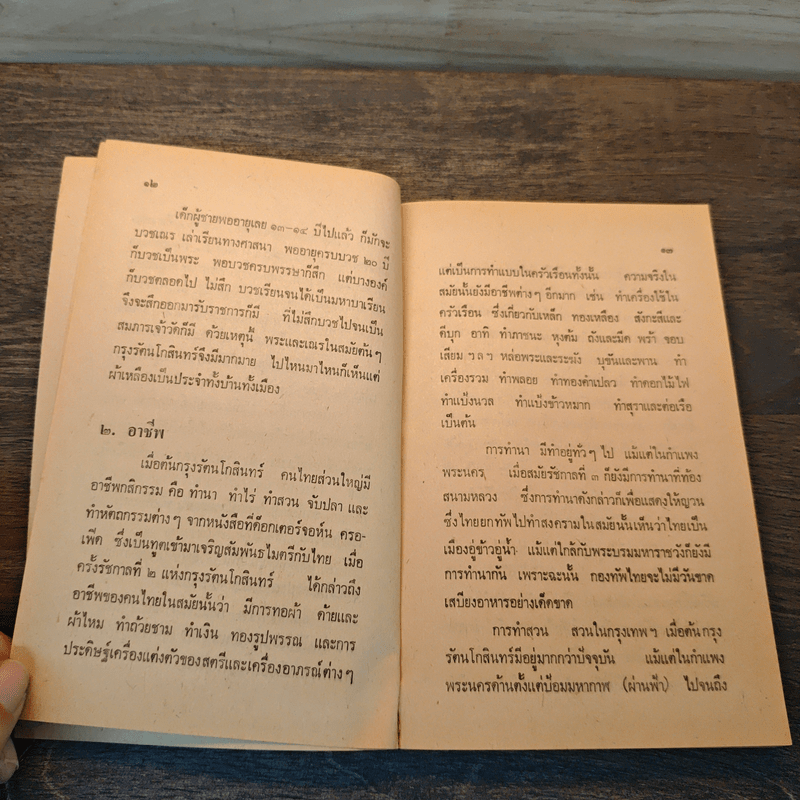 ๑๒
เด็กผู้ชายพออายุเลย ๑๓-๑๔ ปีไปแล้ว ก็มักจะ
บวชเณร เล่าเรียนทางศาสนา พออายุครบบวช ๒๐ ปี
ก็บวชเป็นพระ พอบวชครบพรรษาก็สึก แต่บางองค์
ก็บวชตลอดไป ไม่สึก บวชเรียนจนได้เป็นมหาบาเรียน
จึงจะสึกออกมารับราชการก็มี ที่ไม่สึกบวชไปจนเป็น
สมภารเจ้าวัดก็มี ด้วยเหตุนี้ พระและเณรในสมัยต้นๆ
กรุงรัตนโกสินทร์จึงมีมากมาย ไปไหนมาไหนก็เห็นแต่
ผ้าเหลืองเป็นประจำทั้งบ้านทั้งเมือง
๒. อาชีพ
เมื่อต้นกรุงรัตนโกสินทร์ คนไทยส่วนใหญ่มี
อาชีพกสิกรรม คือ ทำนา ทำไร่ ทำสวน จับปลา และ
ทำหัตถกรรมต่างๆ จากหนังสือที่ด็อกเตอร์จอห์น ครอ-
เฟิด ซึ่งเป็นทูตเข้ามาเจริญสัมพันธไมตรีกับไทย เมื่อ
ครั้งรัชกาลที่ ๒ แห่งกรุงรัตนโกสินทร์ ได้กล่าวถึง
อาชีพของคนไทยในสมัยนั้นว่า มีการทอผ้า ด้ายและ
ผ้าไหม ทำถ้วยชาม ทำเงิน ทองรูปพรรณ และการ
ประดิษฐ์เครื่องแต่งตัวของสตรีและเครื่องอาภรณ์ต่างๆ
๑๓
แต่เป็นการทำแบบในครัวเรือนทั้งนั้น ความจริงใน
สมัยนั้นยังมีอาชีพต่างๆ อีกมาก เช่น ทำเครื่องใช้ใน
ครัวเรือน ซึ่งเกี่ยวกับเหล็ก ทองเหลือง สังกะสีและ
ดีบุก อาทิ ทำภาชนะ หุงต้ม ถังและมีด พร้า ขอบ
เสียม ฯลฯ หล่อพระและระฆัง บุขันและพาน ทำ
เครื่องรวม ทำพลอย ทำทองคำเปลว ทำดอกไม้ไฟ
ทำแป้งนวล ทำแป้งข้าวหมาก ทำสุราและต่อเรือ
เป็นต้น
การทำนา มีทำอยู่ทั่วๆ ไป แม้แต่ในกำแพง
พระนคร เมื่อสมัยรัชกาลที่ ๓ ก็ยังมีการทำนาที่ท้อง
สนามหลวง ซึ่งการทำนาดังกล่าวก็เพื่อแสดงให้ญวน
ซึ่งไทยยกทัพไปทำสงครามในสมัยนั้นเห็นว่าไทยเป็น
เมืองอู่ข้าวอู่น้ำ แม้แต่ใกล้กับพระบรมมหาราชวังก็ยังมี
การทำนากัน เพราะฉะนั้น กองทัพไทยจะไม่มีวันขาด
เสบียงอาหารอย่างเด็ดขาด
การทำสวน สวนในกรุงเทพฯ เมื่อต้นกรุง
รัตนโกสินทร์มีอยู่มากกว่าปัจจุบัน แม้แต่ในกำแพง
พระนครด้านตั้งแต่ป้อมมหากาฬ (ผ่านฟ้า) ไปจนถึง